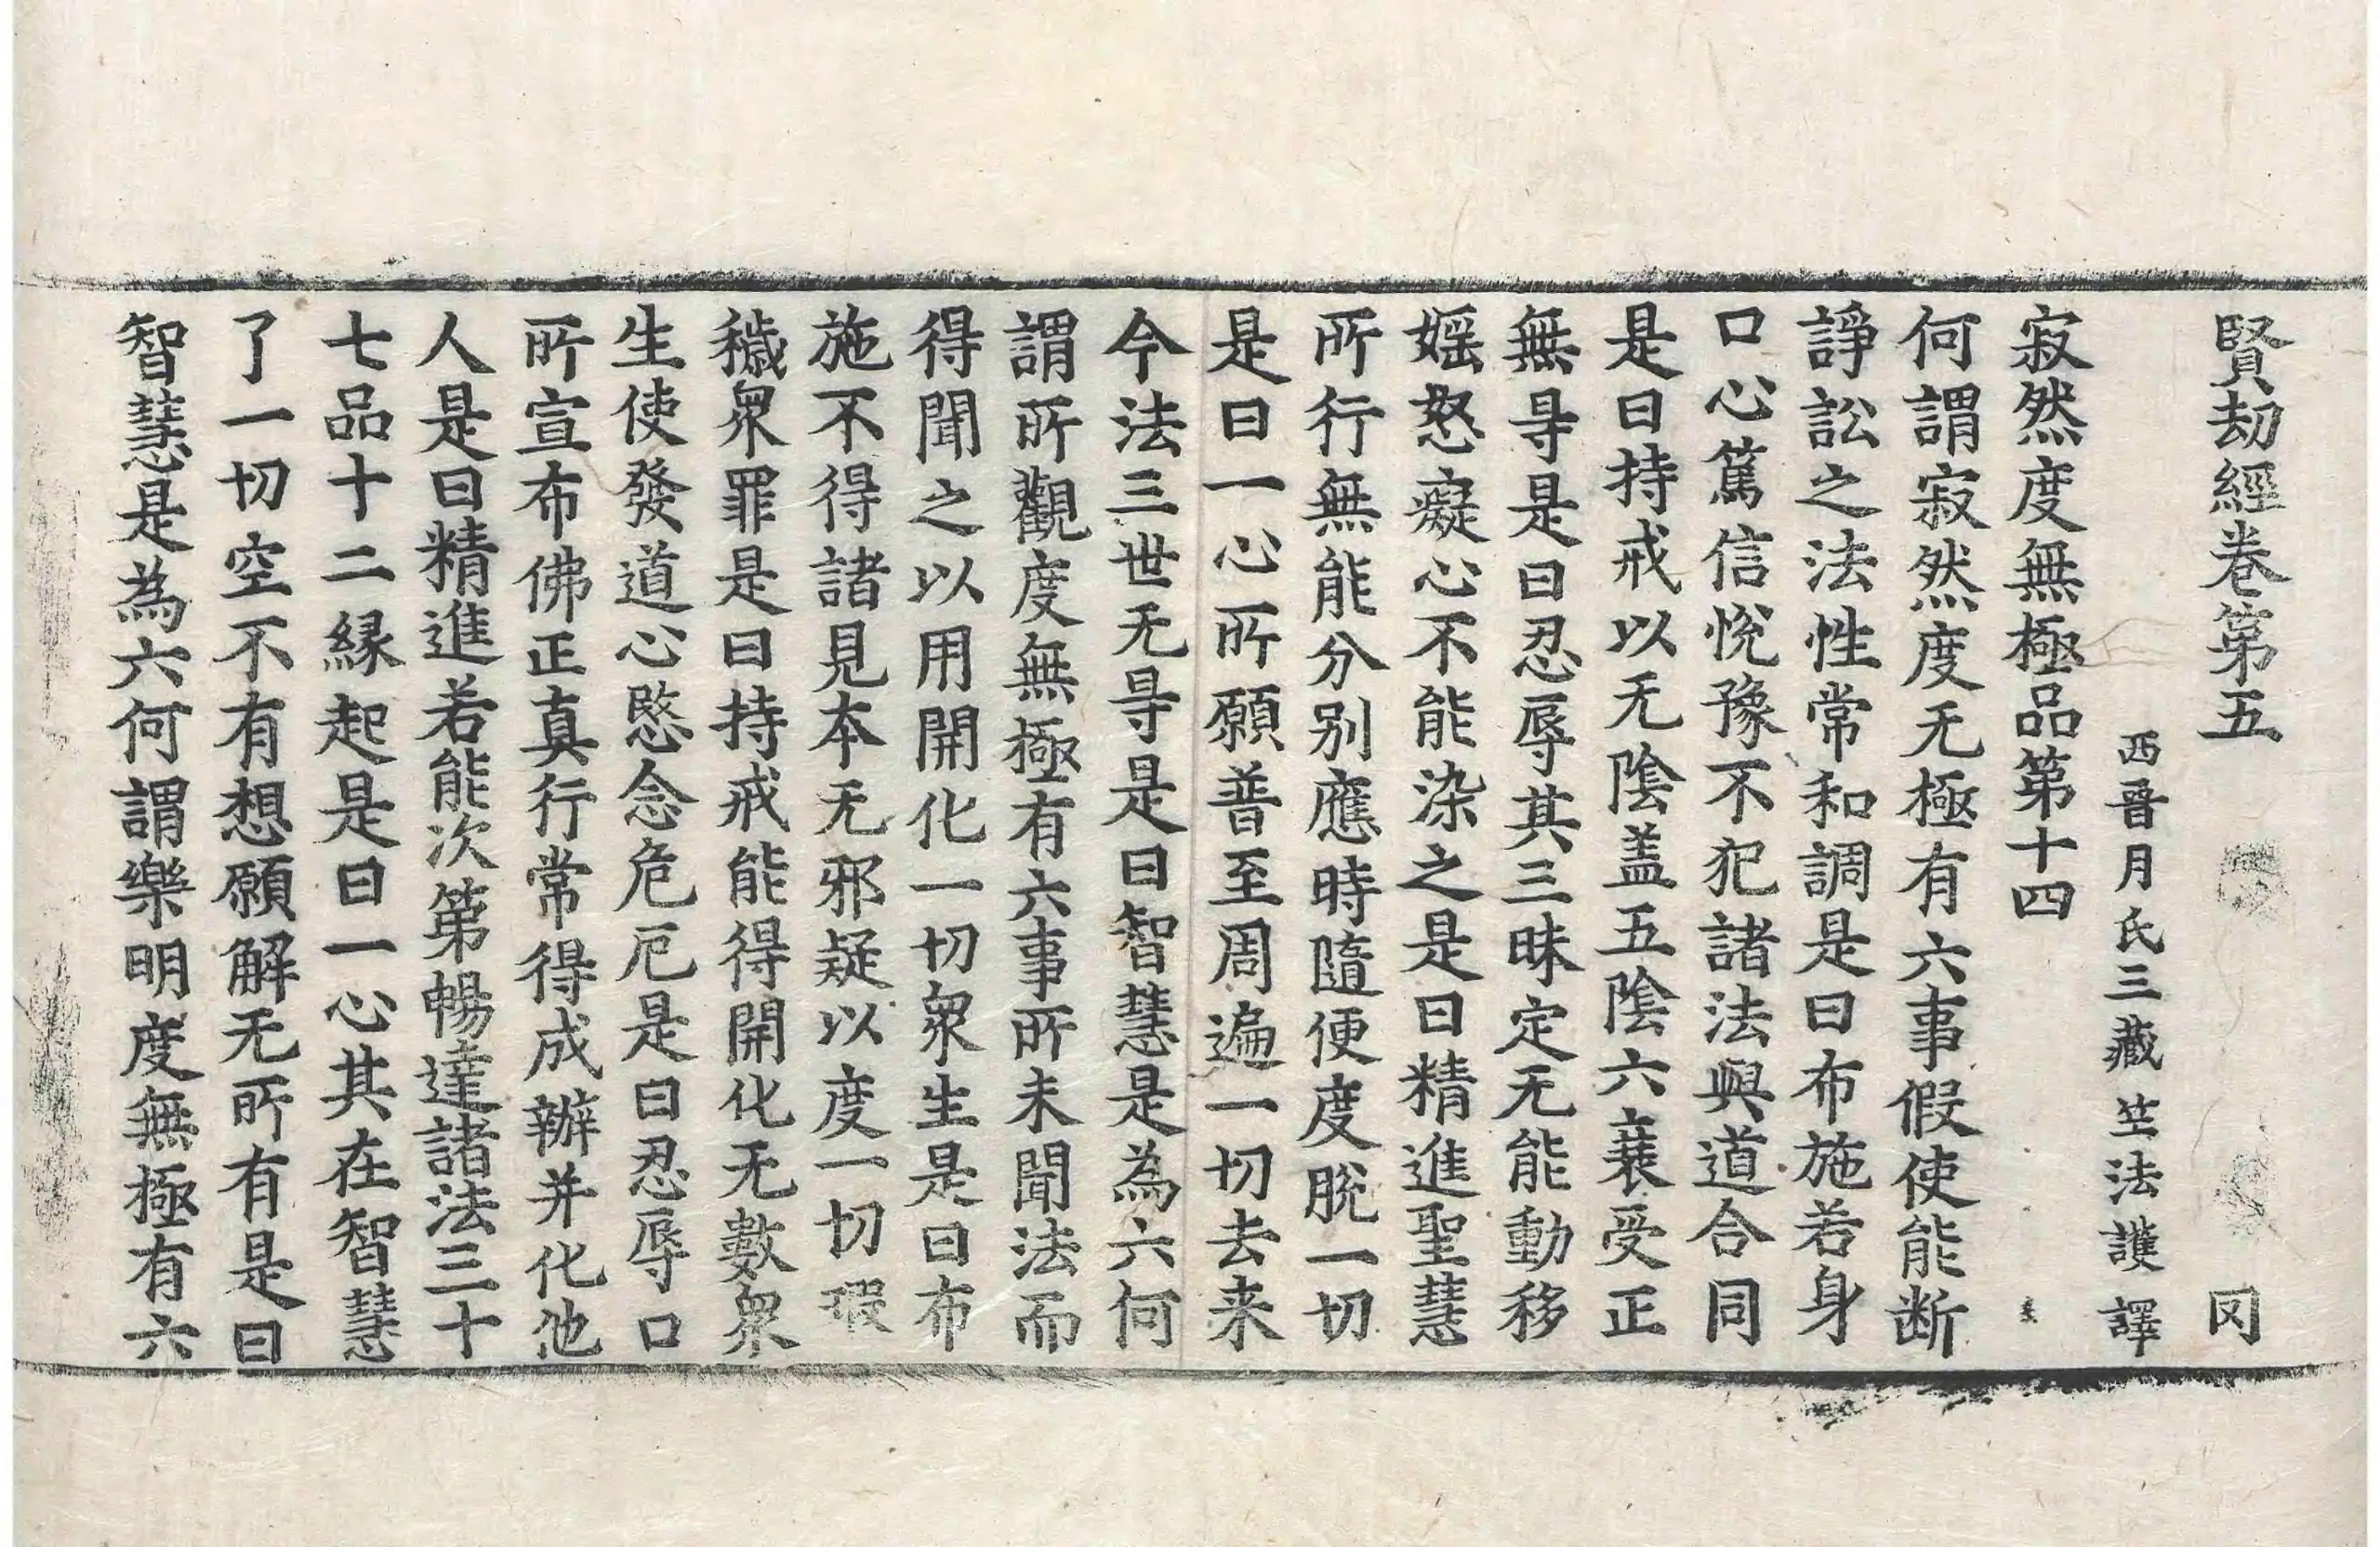 賢劫經卷第五 罔
西晉月氏三藏竺法護譯
寂然度無極品第十四
何謂寂然度无極有六事假使能断
諍訟之法性常和調是曰布施若身
口心篤信悅豫不犯諸法與道合同
是曰持戒以无陰盖五陰六衰受正
無㝵是曰忍辱其三昧定无能動移
婬怒癡心不能染之是曰精進聖慧
所行無能分别應時隨便度脫一切
是曰一心所願普至周遍一切去来
今法三世无㝵是曰智慧是為六何
謂所觀度無極有六事所未聞法而
得聞之以用開化一切眾生是曰布
施不得諸見本无邪疑以度一切瑕
穢眾罪是曰持戒能得開化无數眾
生使發道心愍念危厄是曰忍辱口
所宣布佛正真行常得成辦并化他
人是曰精進若能次第暢達諸法三十
七品十二緣起是曰一心其在智慧
了一切空不有想願解无所有是曰
智慧是為六何謂樂明度無極有六